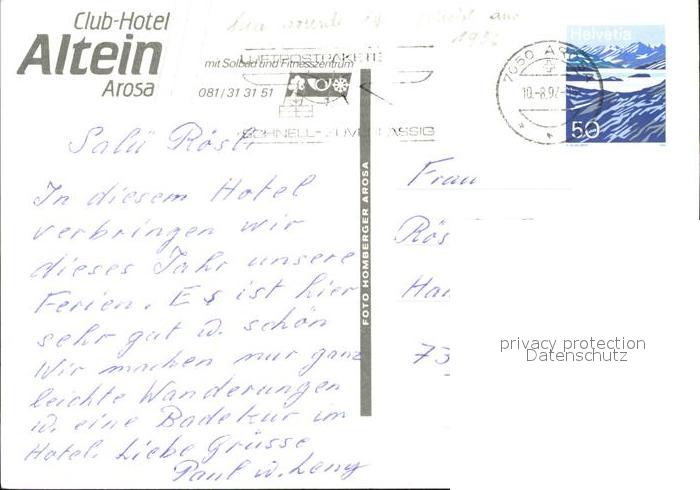 Club-Hotel
Altein
Arosa
mit Solbad und Fitnesszentrum
081/31 31 51
LUFTPOSTPAKETE
SCHNELL-ZUVERLÄSSIG
7050 AROSA
10.-8.92
Helvetia
50
Salü Rösli
In diesem Hotel
verbringen wir
dieses Jahr unsere
Ferien. Es ist hier
sehr gut u. schön
Wir machen nur ganz
leichte Wanderungen
u. eine Badekur im
Hotel. Liebe Grüsse
Paul u. Leny
FOTO HOMBERGER AROSA
Frau
Rös
Ha
73
privacy protection
Datenschutz